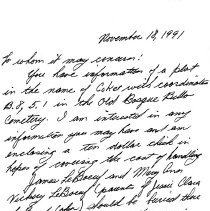 November 18, 1991
To whom it may concern:
You have information of a plat
in the name of Coker with coordinates
B.8,5,1 in the Old Bosque Bello
Cemetery. I am interested in any
information you may have and am
enclosing a ten dollar check in
hopes of covering the cost of handling
James LeBoeuf and Mary Ann
Vickery LeBoeuf parents of Jessie Clara
should be buried there